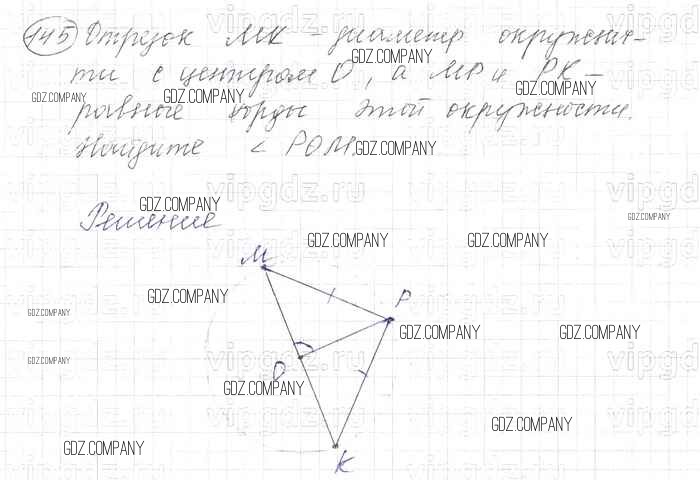 145 Отрезок МК - диаметр окружнос-
ти с центром О, а МР и РК -
равные хорды этой окружности.
Найдите < РОМ.
Решение
М
Р
О
К
GDZ.COMPANY
GDZ.COMPANY
GDZ.COMPANY
GDZ.COMPANY
GDZ.COMPANY
GDZ.COMPANY
GDZ.COMPANY
GDZ.COMPANY
GDZ.COMPANY
GDZ.COMPANY
GDZ.COMPANY
GDZ.COMPANY
GDZ.COMPANY
GDZ.COMPANY
GDZ.COMPANY
GDZ.COMPANY
GDZ.COMPANY
vipgdz.ru